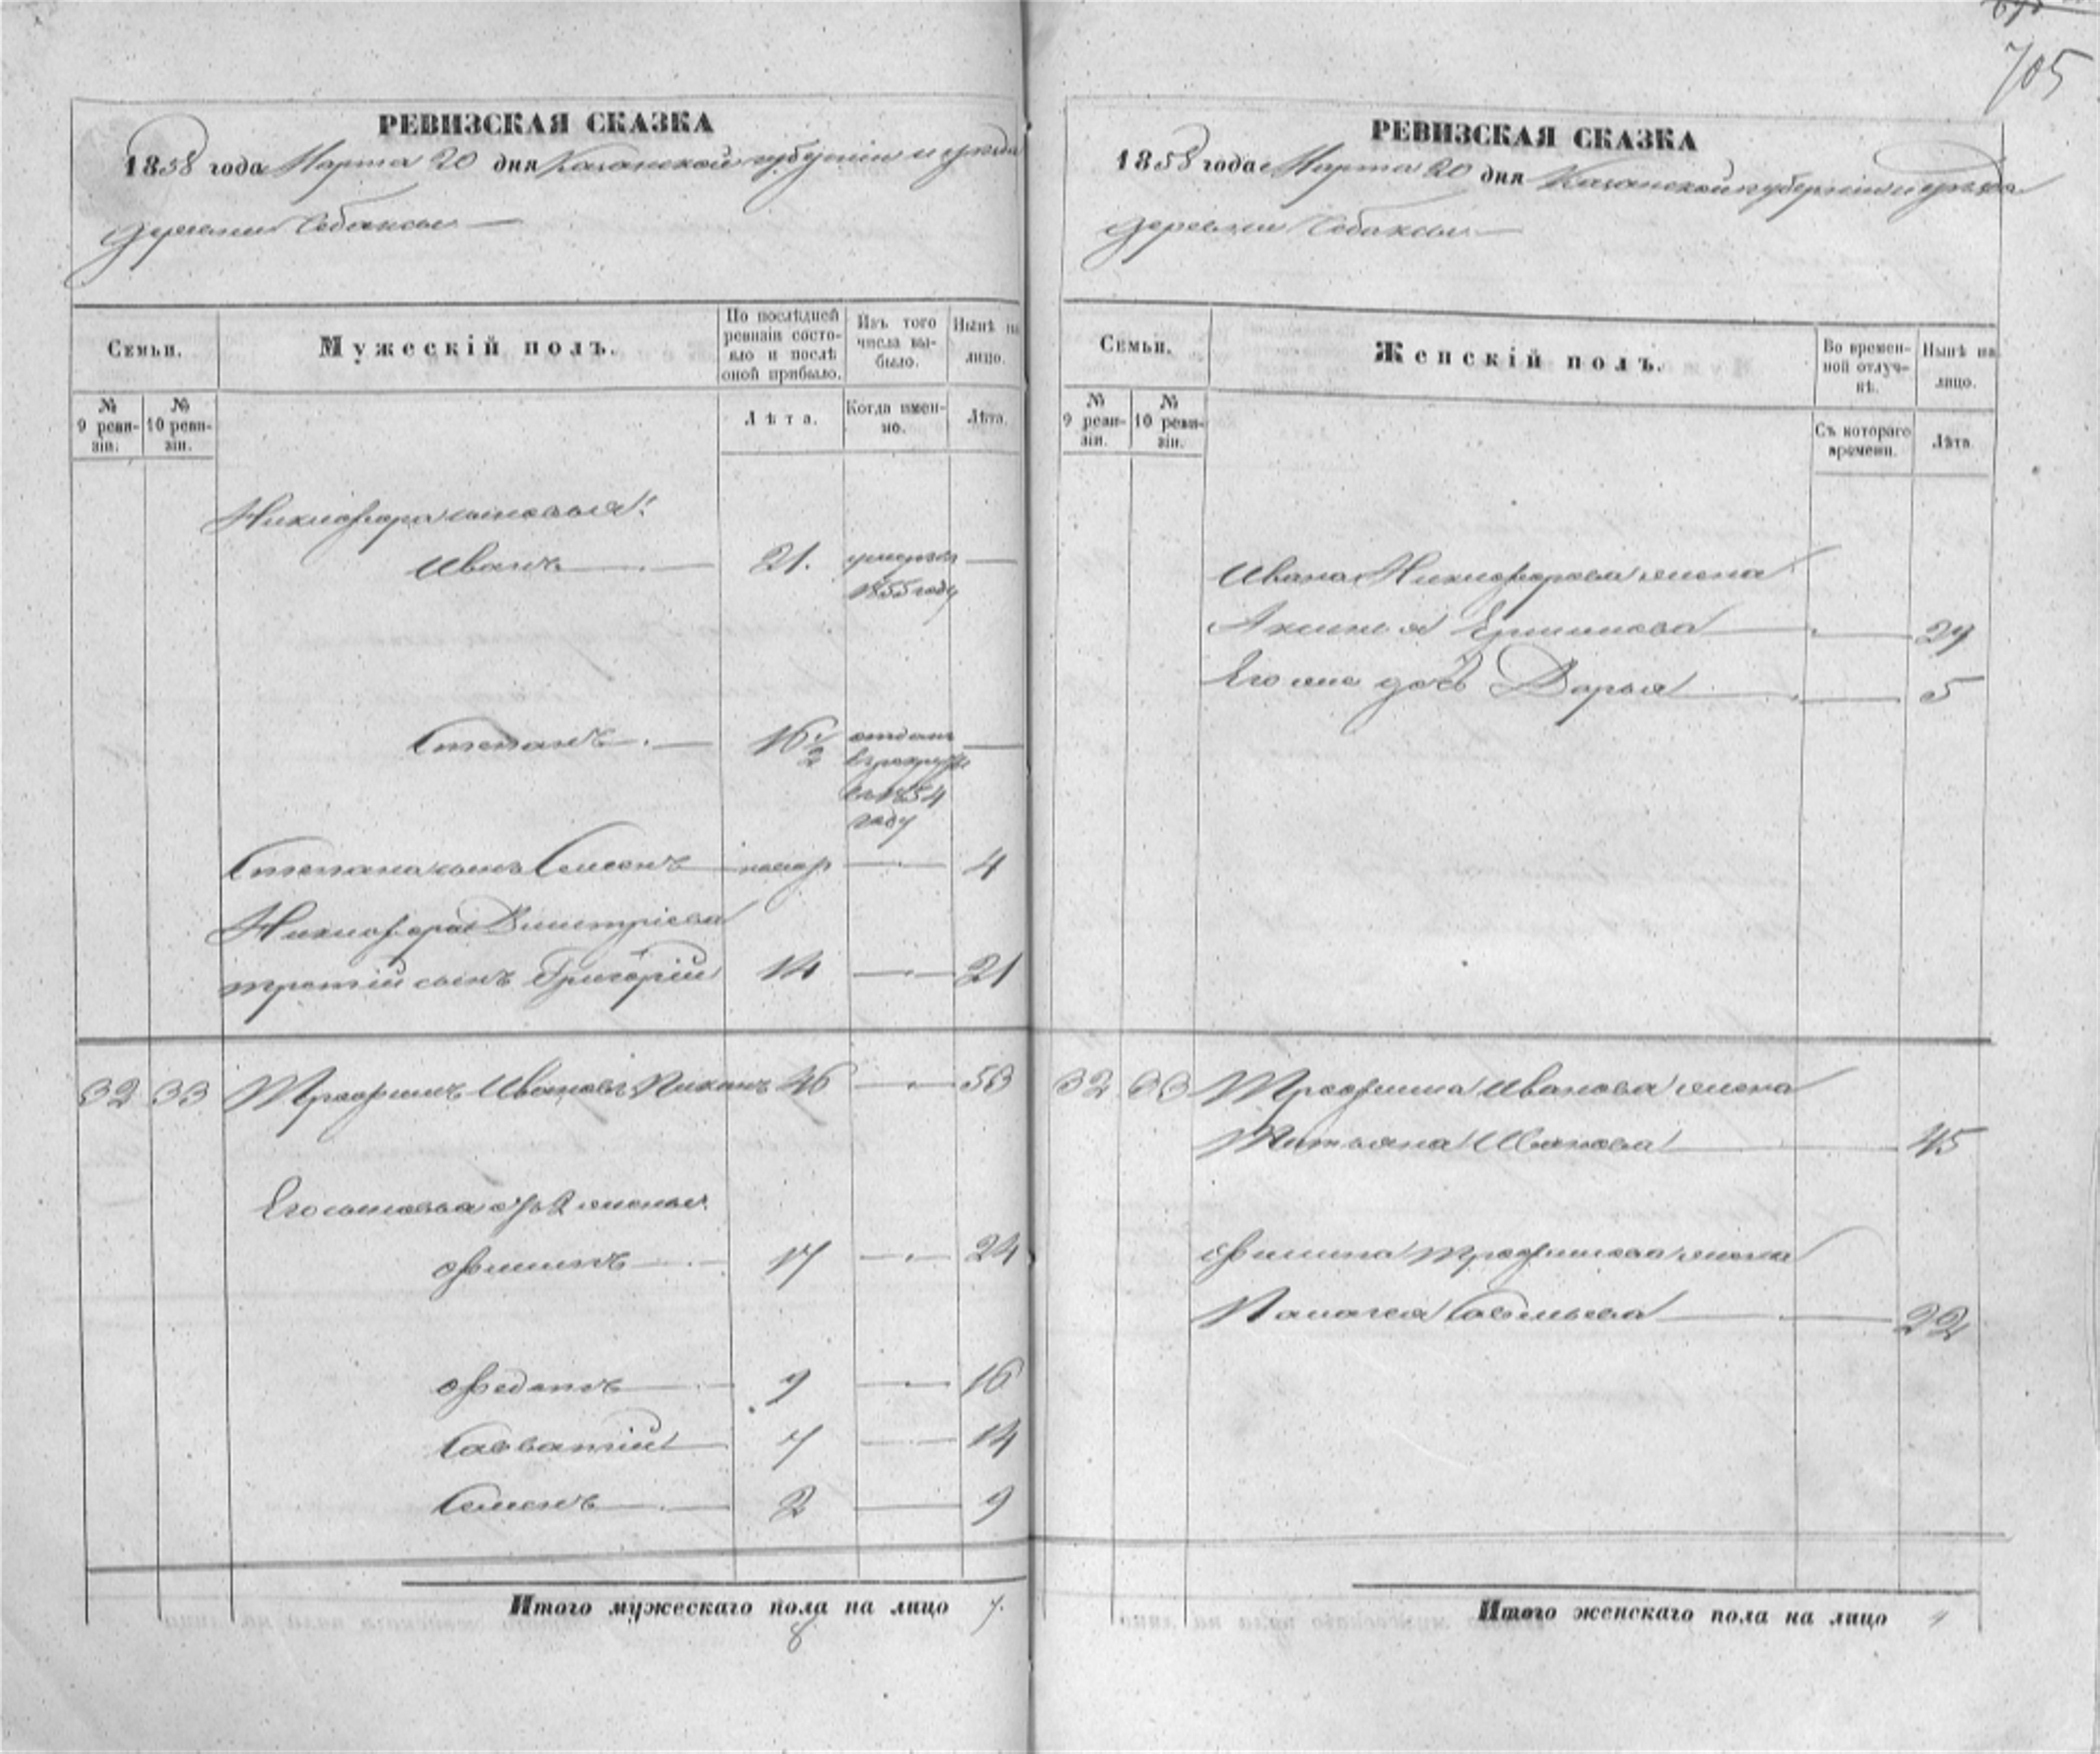 705
РЕВИЗСКАЯ СКАЗКА
1858 года Марта 20 дня Казанской губерніи и уѣзда
деревни Собакси
Семьи.
Мужескій полъ.
По послѣдней ревизіи состояло и послѣ оной прибыло.
Изъ того числа выбыло.
Нынѣ на лицо.
№ 9 ревизіи.
№ 10 ревизіи.
Лѣта.
Когда именно.
Лѣта.
Никифора сыновья:
Иванъ 21. умеръ въ 1855 году
Степанъ 16 1/2 отданъ в рекруты въ 1854 году
Степана сынъ Семенъ 4
Никифора Дмитріева
третій сынъ Григорій 14 21
32 33 Трофимъ Ивановъ 46 53
Его сыновья отъ 2 жены:
Филипъ 17 24
Федотъ 9 16
Савватій 7 14
Семенъ 2 9
Итого мужескаго пола на лицо 7.
8
РЕВИЗСКАЯ СКАЗКА
1858 года Марта 20 дня Казанской губерніи и уѣзда
деревни Собакси
Семьи.
Женскій полъ.
Во временной отлучкѣ.
Нынѣ на лицо.
№ 9 ревизіи.
№ 10 ревизіи.
Съ котораго времени.
Лѣта.
Ивана Никифорова жена
Аксинья 29
Его же дочь Дарья 5
32 33 Трофима Иванова жена
Татьяна Иванова 45
Филипа Трофимова жена
Палагея Савельева 22
Итого женскаго пола на лицо 4